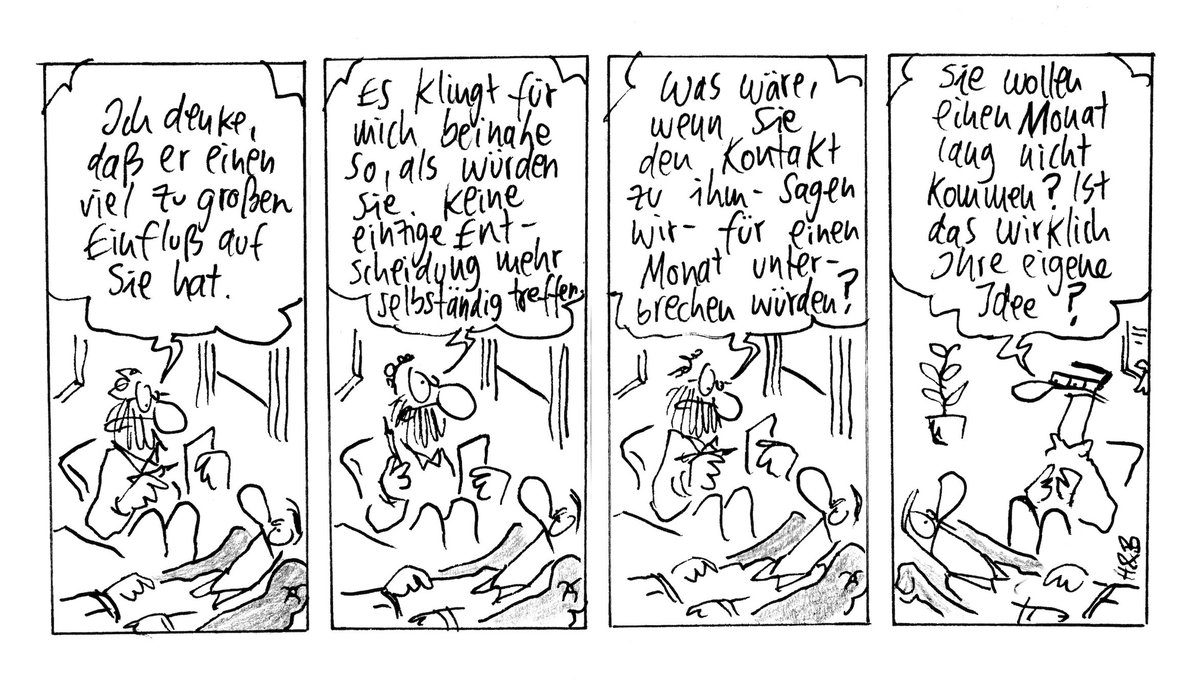 Ich denke,
daß er einen
viel zu großen
Einfluß auf
Sie hat.
Es klingt für
mich beinahe
so, als würden
sie keine
einzige Ent-
scheidung mehr
selbständig treffen.
Was wäre,
wenn Sie
den Kontakt
zu ihm - sagen
wir - für einen
Monat unter-
brechen würden?
Sie wollen
einen Monat
lang nicht
kommen? Ist
das wirklich
Ihre eigene
Idee?
H&B